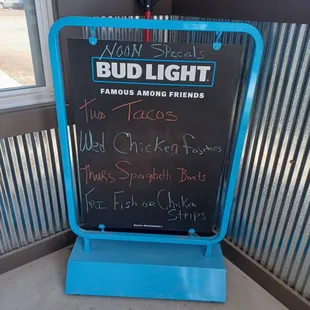 NOON Specials
BUD LIGHT
FAMOUS AMONG FRIENDS
Tus Tacos
Wed Chicken Fajitas
Thurs Spaghetti Boats
Fri Fish or Chicken
Strips